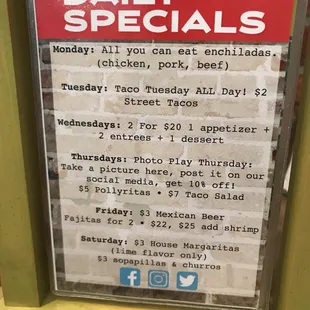 DAILY
SPECIALS
Monday: All you can eat enchiladas.
(chicken, pork, beef)
Tuesday: Taco Tuesday ALL Day! $2
Street Tacos
Wednesdays: 2 For $20 1 appetizer +
2 entrees + 1 dessert
Thursdays: Photo Play Thursday:
Take a picture here, post it on our
social media, get 10% off!
$5 Pollyritas • $7 Taco Salad
Friday: $3 Mexican Beer
Fajitas for 2 • $22, $25 add shrimp
Saturday: $3 House Margaritas
(lime flavor only)
$3 sopapillas & churros